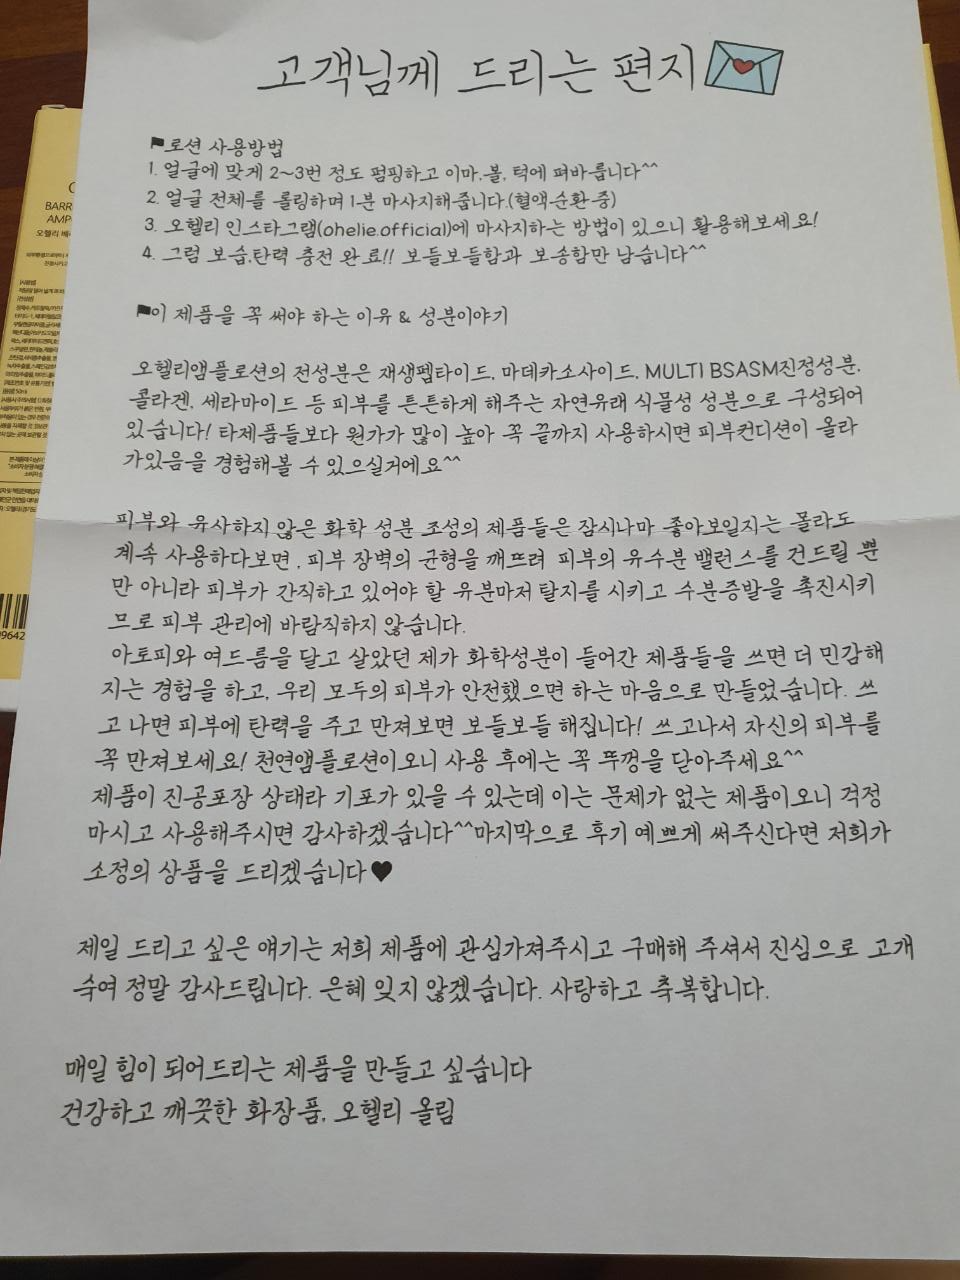 고객님께 드리는 편지
로션 사용방법
1. 얼굴에 맞게 2~3번 정도 펌핑하고 이마.볼, 턱에 펴바릅니다^^
2. 얼굴 전체를 롤링하며 1분 마사지해줍니다.(혈액순환 중)
3. 오헬리 인스타그램(ohelie.official)에 마사지하는 방법이 있으니 활용해보세요!
4. 그럼 보습,탄력 충전 완료!! 보들보들함과 보송함만 남습니다^^
이 제품을 꼭 써야 하는 이유 & 성분이야기
오헬리앰플로션의 전성분은 재생펩타이드, 마데카소사이드, MULTI BSASM진정성분,
콜라겐, 세라마이드 등 피부를 튼튼하게 해주는 자연유래 식물성 성분으로 구성되어
있습니다! 타제품들보다 원가가 많이 높아 꼭 끝까지 사용하시면 피부컨디션이 올라
가있음을 경험해볼 수 있으실거에요^^
피부와 유사하지 않은 화학 성분 조성의 제품들은 잠시나마 좋아보일지는 몰라도
계속 사용하다보면, 피부 장벽의 균형을 깨뜨려 피부의 유수분 밸런스를 건드릴 뿐
만 아니라 피부가 간직하고 있어야 할 유분마저 탈지를 시키고 수분증발을 촉진시키
므로 피부 관리에 바람직하지 않습니다.
아토피와 여드름을 달고 살았던 제가 화학성분이 들어간 제품들을 쓰면 더 민감해
지는 경험을 하고, 우리 모두의 피부가 안전했으면 하는 마음으로 만들었습니다. 쓰
고 나면 피부에 탄력을 주고 만져보면 보들보들 해집니다! 쓰고나서 자신의 피부를
꼭 만져보세요! 천연앰플로션이오니 사용 후에는 꼭 뚜껑을 닫아주세요^^
제품이 진공포장 상태라 기포가 있을 수 있는데 이는 문제가 없는 제품이오니 걱정
마시고 사용해주시면 감사하겠습니다^^마지막으로 후기 예쁘게 써주신다면 저희가
소정의 상품을 드리겠습니다♥
제일 드리고 싶은 얘기는 저희 제품에 관심가져주시고 구매해 주셔서 진심으로 고개
숙여 정말 감사드립니다. 은혜 잊지 않겠습니다. 사랑하고 축복합니다.
매일 힘이 되어드리는 제품을 만들고 싶습니다
건강하고 깨끗한 화장품, 오헬리 올림